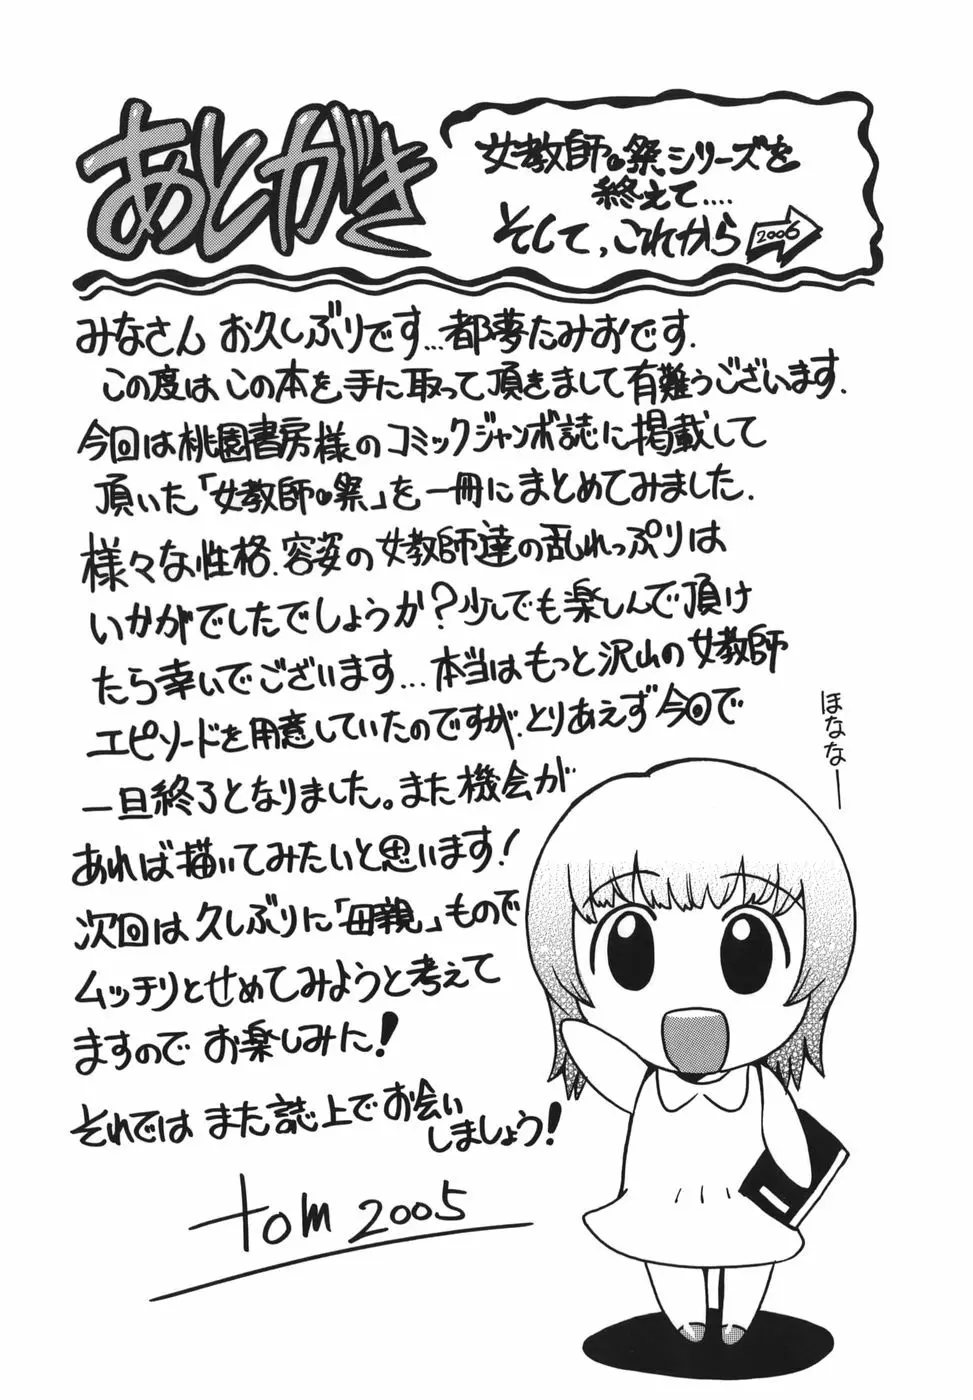 あとがき
女教師の祭シリーズを
終えて....
そして,これから
2006
みなさん お久しぶりです...都夢たみおです.
この度は、この本を手に取って頂きまして有難うございます.
今回は桃園書房様のコミックジャンボ誌に掲載して
頂いた「女教師の祭」を一冊にまとめてみました.
様々な性格.容姿の女教師達の乱れっぷりは
いかがでしたでしょうか?少しでも楽しんで頂け
たら幸いでございます...本当はもっと沢山の女教師
エピソードを用意していたのですが、とりあえず今回で
一旦終了となりました。また機会が
あれば描いてみたいと思います!
次回は久しぶりに「母親」もので
ムッチリとせめてみようと考えて
ますので お楽しみに!
それでは また誌上でお会い
しましょう!
tom 2005
ほななー